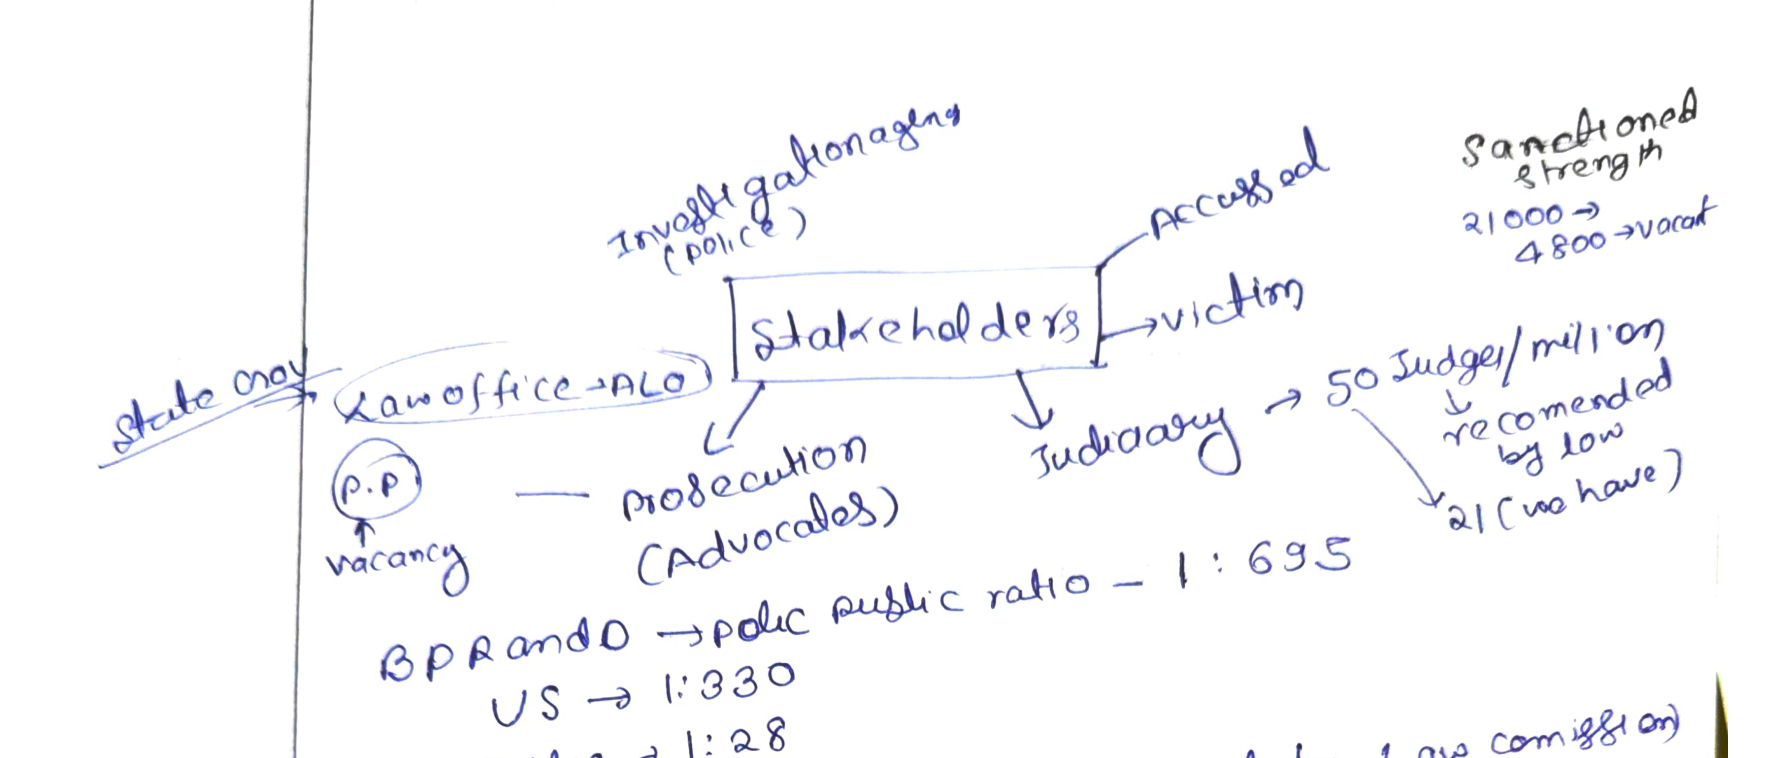 Investigation agency
(police)
Accussed
Sanctioned
strength
21000 →
4800 → vacat
Stakeholders
→ victim
State Gov
Law office → ALO
Judiciary → 50 Judges/million
recomended
by low
21 (we have)
P.P — prosecution
(Advocates)
vacancy
BPR and D → polic public ratio – 1 : 695
US → 1:330
→ 1:28
Law comission)